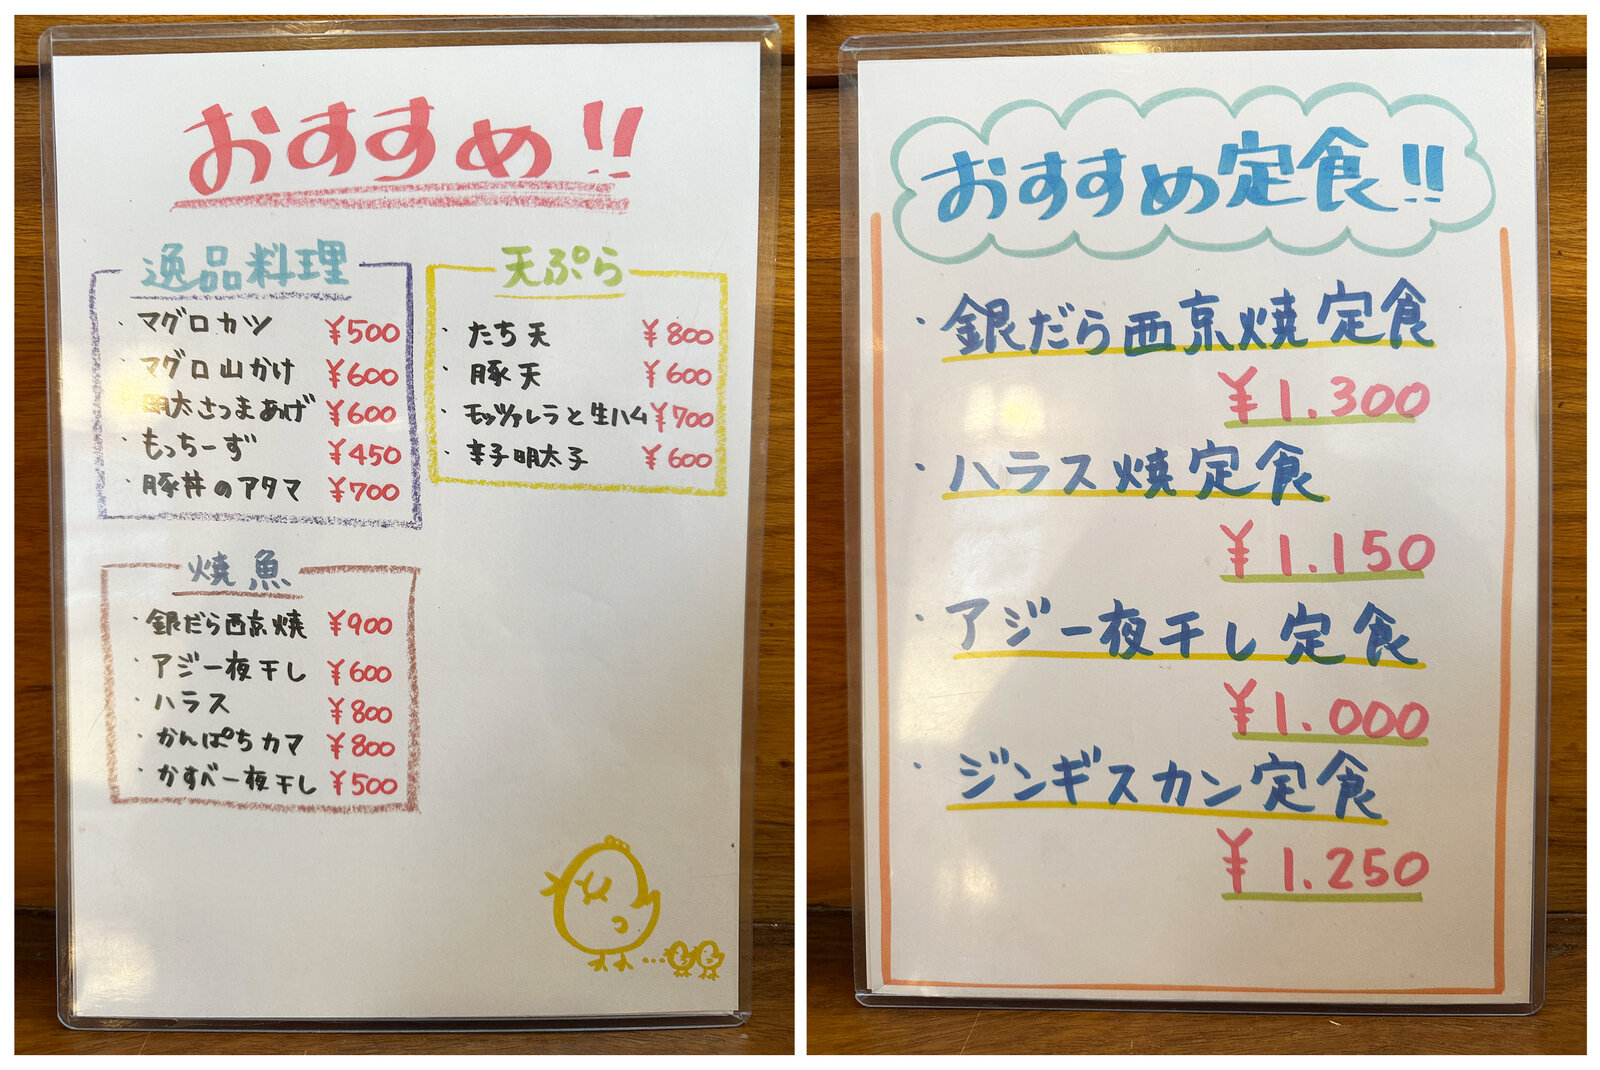 おすすめ!!
逸品料理
・マグロカツ ¥500
・マグロ山かけ ¥600
明太さつまあげ ¥600
・もっちーず ¥450
・豚丼のアタマ ¥700
天ぷら
・たち天 ¥800
・豚天 ¥600
・モッツァレラと生ハム ¥700
・辛子明太子 ¥600
焼魚
・銀だら西京焼 ¥900
・アジ一夜干し ¥600
・ハラス ¥800
・かんぱちカマ ¥800
・かすべ一夜干し ¥500
おすすめ定食!!
・銀だら西京焼定食
¥1.300
・ハラス焼定食
¥1.150
・アジ一夜干し定食
¥1.000
・ジンギスカン定食
¥1.250